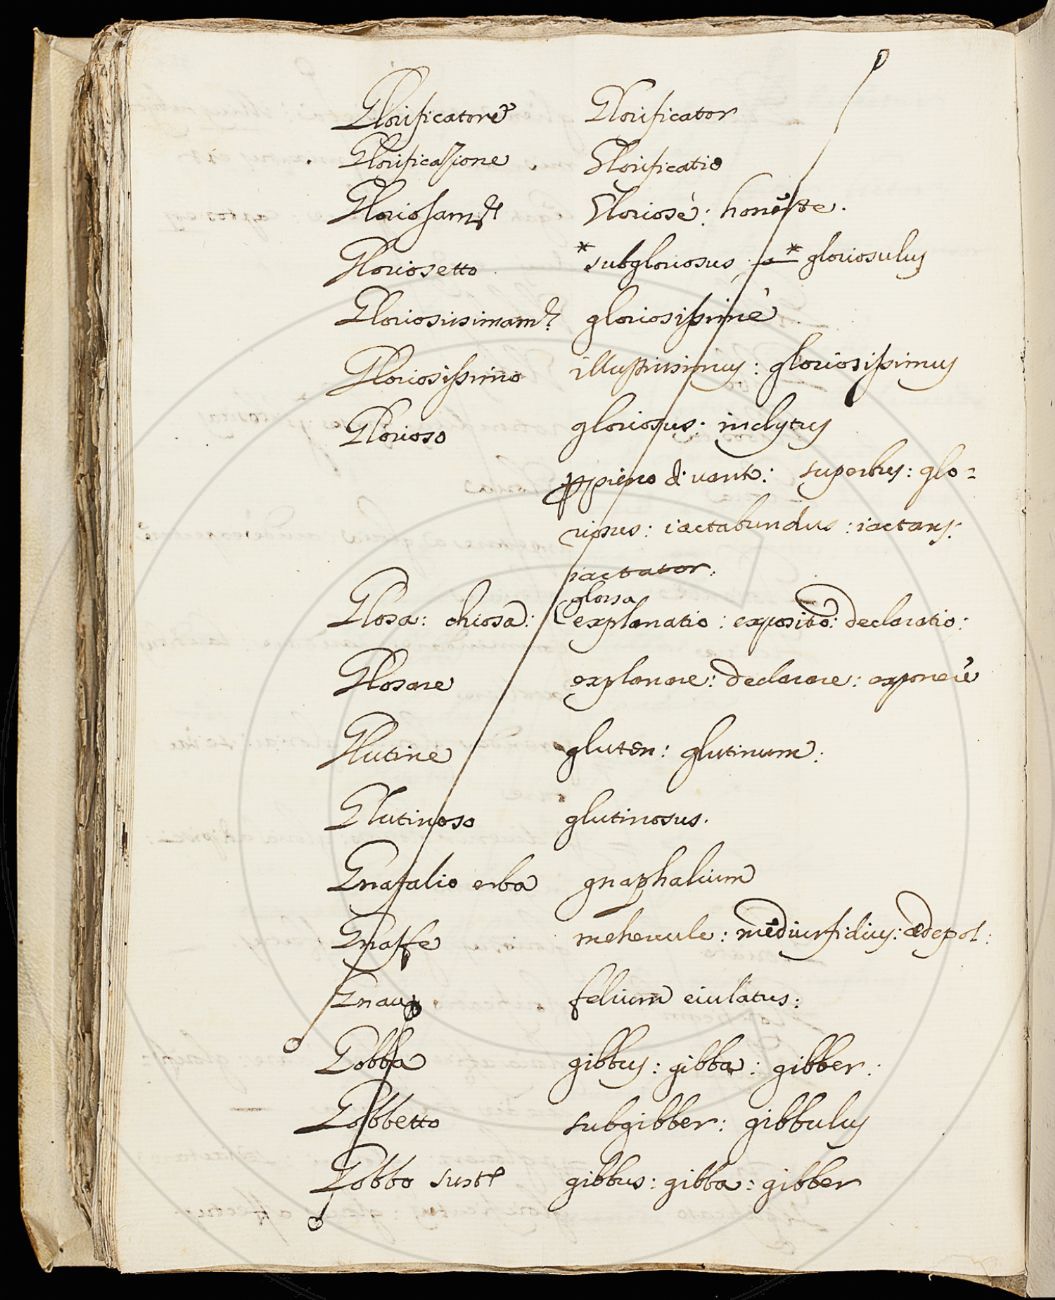 Glorificatore Glorificator
Glorificazione Glorificatio
Gloriosam.te Gloriosè: honeste.
Gloriosetto *subgloriosus * gloriosulus
Gloriosissimam.te gloriosissimè
Gloriosissimo illustrissimus: gloriosissimus
Glorioso gloriosus. inclytus
p pieno di vanto: superbus: glo=
riosus: iactabundus: iactans:
iactator.
glossa
Glosa: chiosa: explanatio: expositio: declaratio:
Glosare explanare: declarare: exponere
Glutine gluten: glutinum:
Glutinoso glutinosus.
Gnafalio erba gnaphalium
Gnaffe mehercule: mediusfidius: ædepol:
Gnau felium eiulatus:
Gobba gibbus: gibba: gibber:
Gobbetto subgibber: gibbulus
Gobbo sust.e gibbus: gibba: gibber